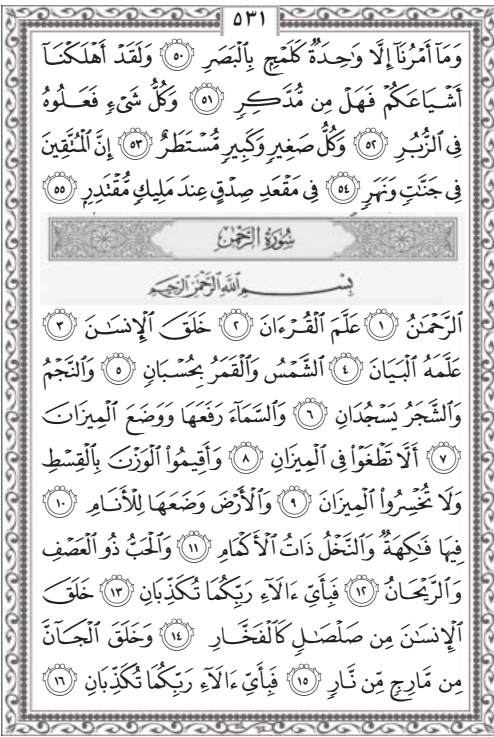 ٥٣١
وَمَآ أَمْرُنَآ إِلَّا وَٰحِدَةٌ كَلَمْحٍۭ بِٱلْبَصَرِ ٥٠ وَلَقَدْ أَهْلَكْنَآ
أَشْيَاعَكُمْ فَهَلْ مِن مُّدَّكِرٍ ٥١ وَكُلُّ شَىْءٍ فَعَلُوهُ
فِى ٱلزُّبُرِ ٥٢ وَكُلُّ صَغِيرٍ وَكَبِيرٍ مُّسْتَطَرٌ ٥٣ إِنَّ ٱلْمُتَّقِينَ
فِى جَنَّٰتٍ وَنَهَرٍ ٥٤ فِى مَقْعَدِ صِدْقٍ عِندَ مَلِيكٍ مُّقْتَدِرٍۭ ٥٥
سُورَةُ الرَّحْمَٰن
بِسْمِ ٱللَّهِ ٱلرَّحْمَٰنِ ٱلرَّحِيمِ
ٱلرَّحْمَٰنُ ١ عَلَّمَ ٱلْقُرْءَانَ ٢ خَلَقَ ٱلْإِنسَٰنَ ٣
عَلَّمَهُ ٱلْبَيَانَ ٤ ٱلشَّمْسُ وَٱلْقَمَرُ بِحُسْبَانٍ ٥ وَٱلنَّجْمُ
وَٱلشَّجَرُ يَسْجُدَانِ ٦ وَٱلسَّمَآءَ رَفَعَهَا وَوَضَعَ ٱلْمِيزَانَ
٧ أَلَّا تَطْغَوْا۟ فِى ٱلْمِيزَانِ ٨ وَأَقِيمُوا۟ ٱلْوَزْنَ بِٱلْقِسْطِ
وَلَا تُخْسِرُوا۟ ٱلْمِيزَانَ ٩ وَٱلْأَرْضَ وَضَعَهَا لِلْأَنَامِ ١٠
فِيهَا فَٰكِهَةٌ وَٱلنَّخْلُ ذَاتُ ٱلْأَكْمَامِ ١١ وَٱلْحَبُّ ذُو ٱلْعَصْفِ
وَٱلرَّيْحَانُ ١٢ فَبِأَىِّ ءَالَآءِ رَبِّكُمَا تُكَذِّبَانِ ١٣ خَلَقَ
ٱلْإِنسَٰنَ مِن صَلْصَٰلٍ كَٱلْفَخَّارِ ١٤ وَخَلَقَ ٱلْجَآنَّ
مِن مَّارِجٍ مِّن نَّارٍ ١٥ فَبِأَىِّ ءَالَآءِ رَبِّكُمَا تُكَذِّبَانِ ١٦